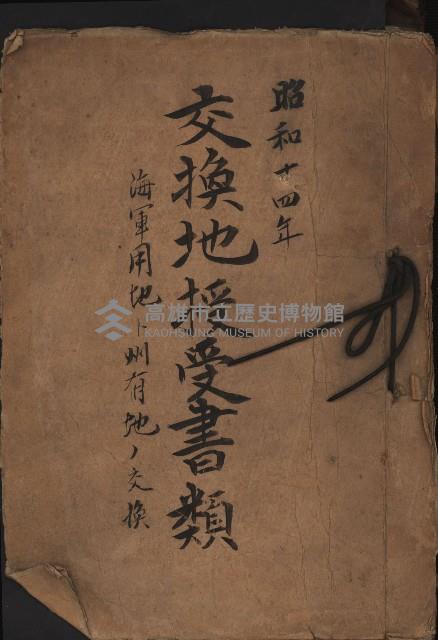 昭和十四年
交換地授受書類
海軍用地ト州有地ノ交換
高雄市立歷史博物館
KAOHSIUNG MUSEUM OF HISTORY